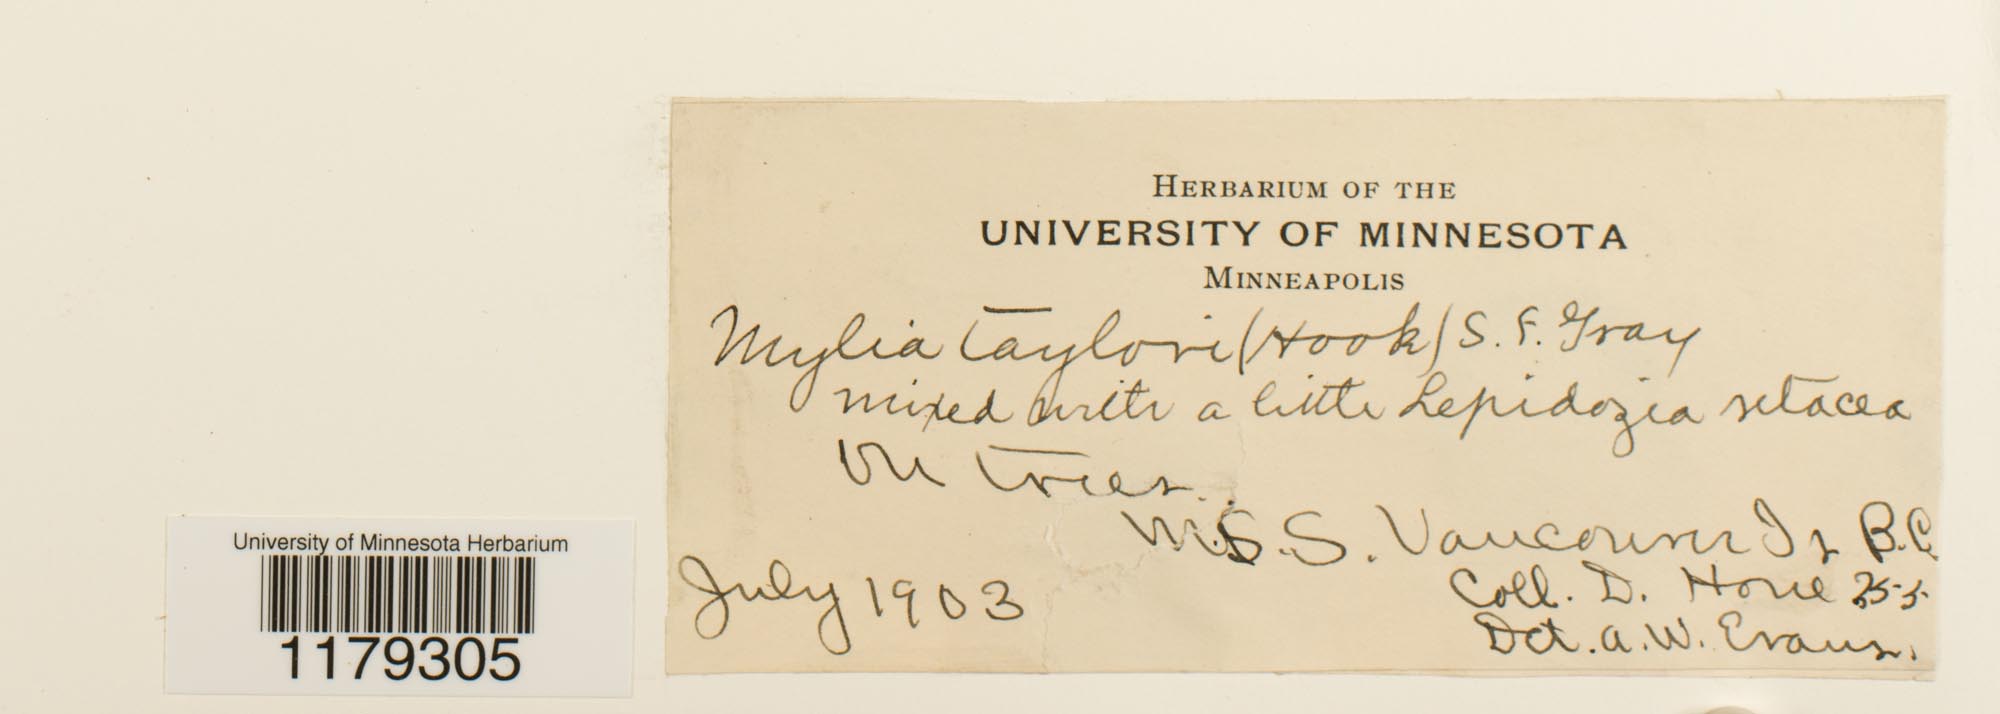 HERBARIUM OF THE
UNIVERSITY OF MINNESOTA
MINNEAPOLIS
Mylia taylori (Hook) S. F. Gray
mixed with a little Lepidozia setacea
On trees.
M.S.S. Vancouver Is B.C.
July 1903
Coll. D. Hone 255
Det. A. W. Evans.
University of Minnesota Herbarium
1179305